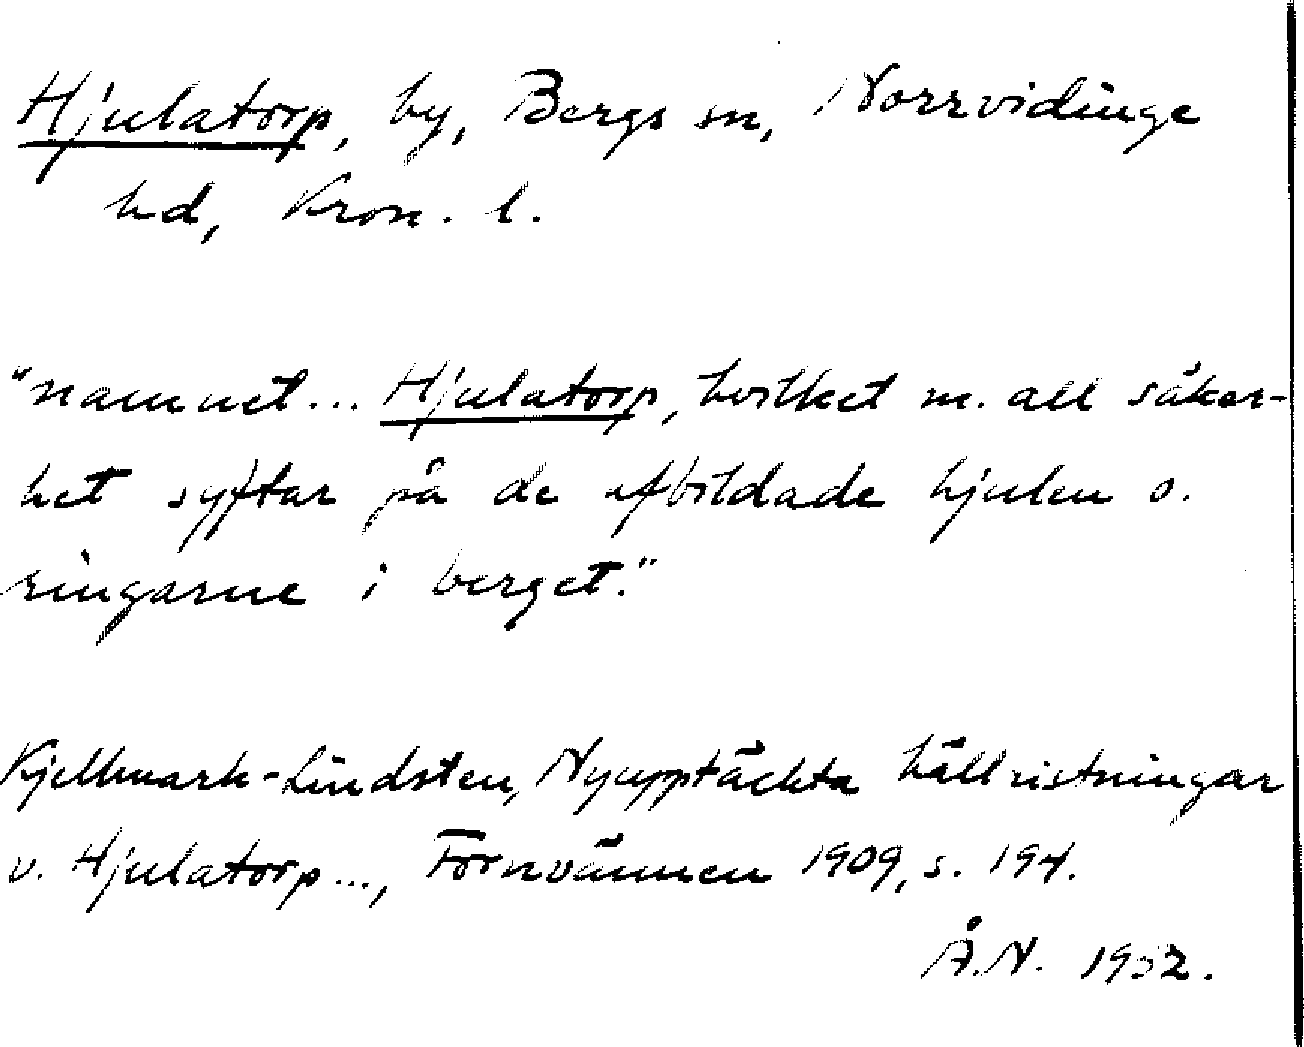 Hjulatorp, by, Bergs sn, Norrvidinge
hd, Kron. l.
"namnet... Hjulatorp, hvilket m. all säker-
het syftar på de afbildade hjulen o.
ringarne i berget."
Kjellmark-Lindsten, Nyupptäckta hällristningar
v. Hjulatorp..., Fornvännen 1909, s. 194.
Å.N. 1932.